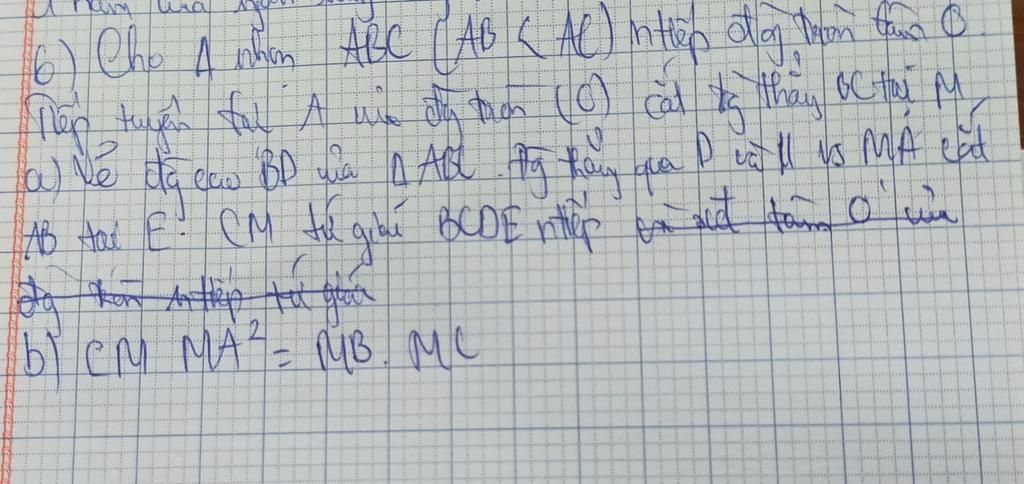 6) Cho Δ nhọn ABC (AB < AC) ntiếp đg tròn tâm O.
Tiếp tuyến tại A của đg tròn (O) cắt đg thẳg BC tại M
a) Vẽ đg cao BD của Δ ABC. Đg thẳg qua D và // vs MA cắt
AB tại E. CM tứ giác BCDE ntiếp và xđ tâm O' của
đg tròn ntiếp tứ giác
b) CM MA² = MB. MC